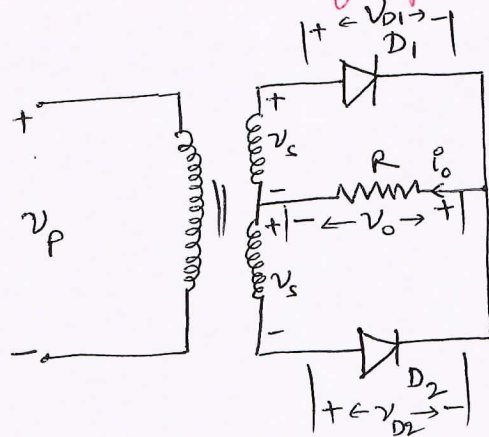 |+ ← v_D1 → -|
D_1
+
+
v_s
R
i_o
-
v_p
+ |- ← v_o → +|
v_s
-
-
D_2
|+ ← v_D2 → -|